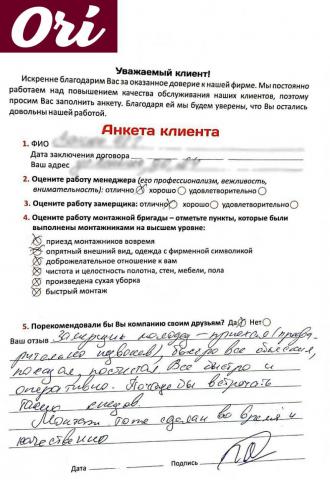 Ori
Уважаемый клиент!
Искренне благодарим Вас за оказанное доверие к нашей фирме. Мы постоянно
работаем над повышением качества обслуживания наших клиентов, поэтому
просим Вас заполнить анкету. Благодаря ей мы будем уверены, что Вы остались
довольны нашей работой.
Анкета клиента
1. ФИО
Дата заключения договора
Ваш адрес
2. Оцените работу менеджера (его профессионализм, вежливость,
внимательность): отлично хорошо удовлетворительно
3. Оцените работу замерщика: отлично хорошо удовлетворительно
4. Оцените работу монтажной бригады – отметьте пункты, которые были
выполнены монтажниками на высшем уровне:
приезд монтажников вовремя
опрятный внешний вид, одежда с фирменной символикой
доброжелательное отношение к вам
чистота и целостность полотна, стен, мебели, пола
произведена сухая уборка
быстрый монтаж
5. Порекомендовали бы Вы компанию своим друзьям? Да Нет
Ваш отзыв Замерщик молодец – приехал (предва
рительно позвонив), быстро все объяснил,
показал, посчитал. Все быстро и
оперативно. Почаще бы встречать
таких спецов.
Монтаж тоже сделан во время и
качественно
Дата Подпись